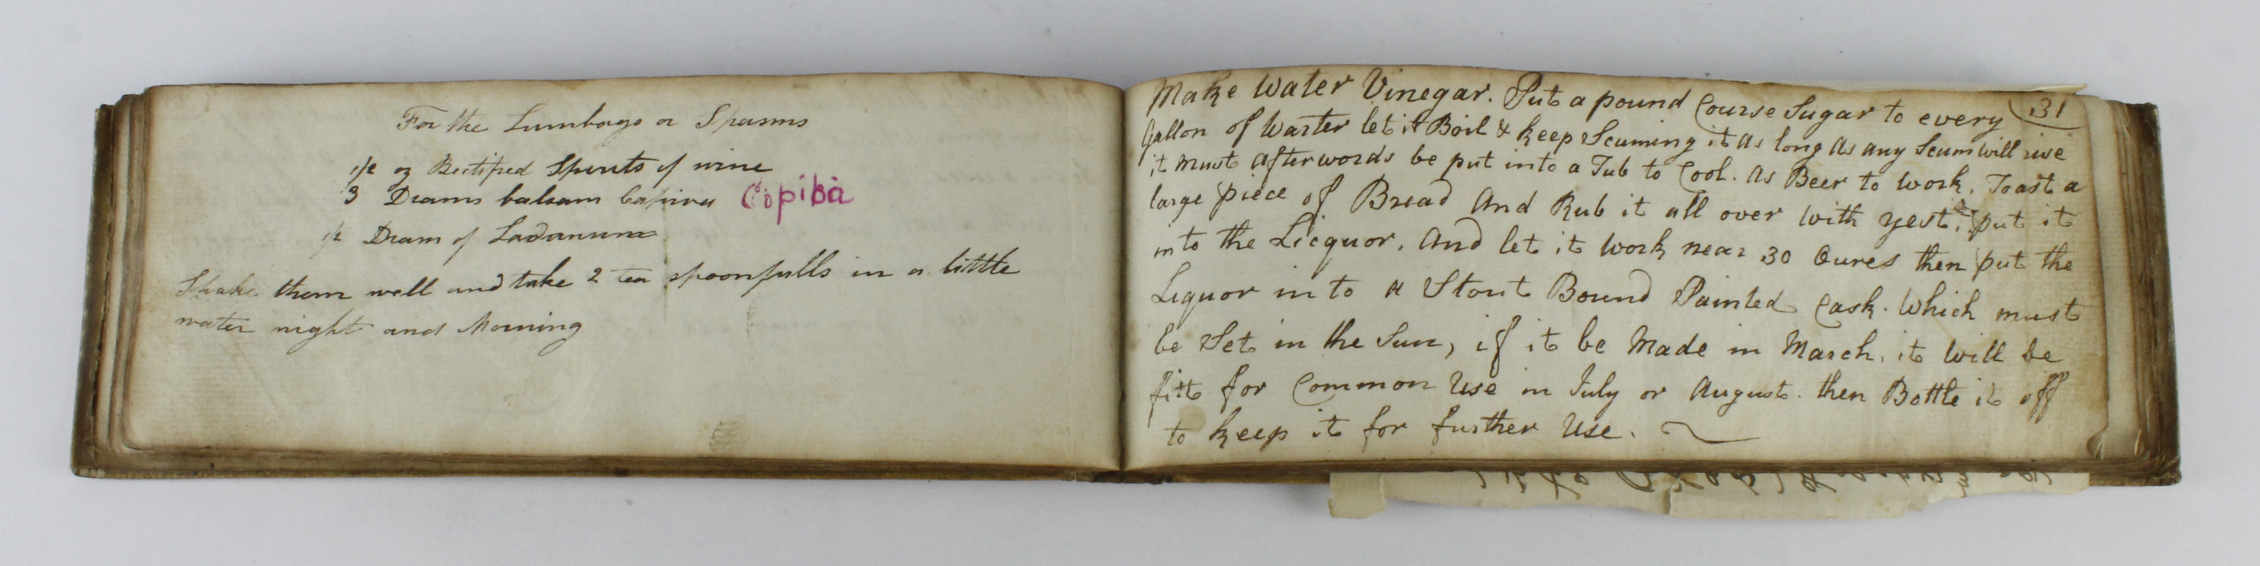 For the Lumbago or Spasms
1/2 oz Rectified Spirits of wine
3 Drams balsam Capivu Copiba
1/2 Dram of Ladanum
Shake them well and take 2 tea spoonfulls in a little
water night and Morning
31
Make Water Vinegar. Put a pound Course Sugar to every
Gallon of Warter let it Boil & keep Scuming it as long as any Scum will rise
it must afterwords be put into a Tub to Cool. as Beer to work. Toast a
large piece of Bread and Rub it all over with yest. put it
into the Licquor. and let it work near 30 Oures then put the
Liquor in to a Stout Bound Painted Cask. Which must
be Set in the Sun, if it be Made in March. it will be
fitt for Common Use in July or August. then Bottle it off
to keep it for further Use.